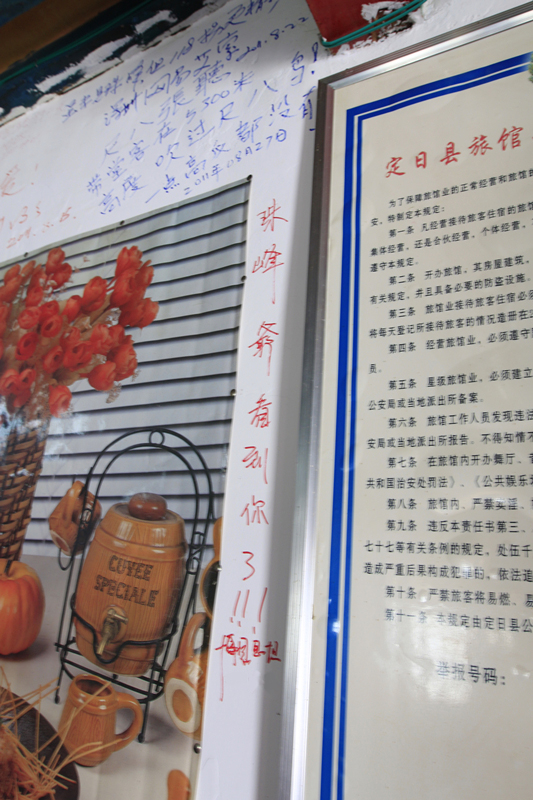 2011.8.22
尺八张听
常堂客在5300米
高度吹过尺八
一点高反都没有!
2011年08月27日
珠峰爷看到你了!!!
CUVEE
SPECIALE
定日县旅馆
为了保障旅馆业的正常经营和旅馆的
安,特制定本规定:
第一条 凡经营接待旅客住宿的旅馆
集体经营,还是合伙经营,个体经营,
遵守本规定。
第二条 开办旅馆,其房屋建筑,
有关规定,并且具备必要的防盗设施。
第三条 旅馆业接待旅客住宿必须
将每天登记所接待旅客的情况造册在
第四条 经营旅馆业,必须遵守
员。
第五条 星级旅馆业,必须建立
公安局或当地派出所备案。
第六条 旅馆工作人员发现违法
安局或当地派出所报告,不得知情不
第七条 在旅馆内开办舞厅、
共和国治安处罚法》、《公共娱乐
第八条 旅馆内,严禁卖淫、
第九条 违反本责任书第三、
七十七等有关条例的规定,处伍千
造成严重后果构成犯罪的,依法追
第十条 严禁旅客将易燃、易
第十一条 本规定由定日县公
举报号码: